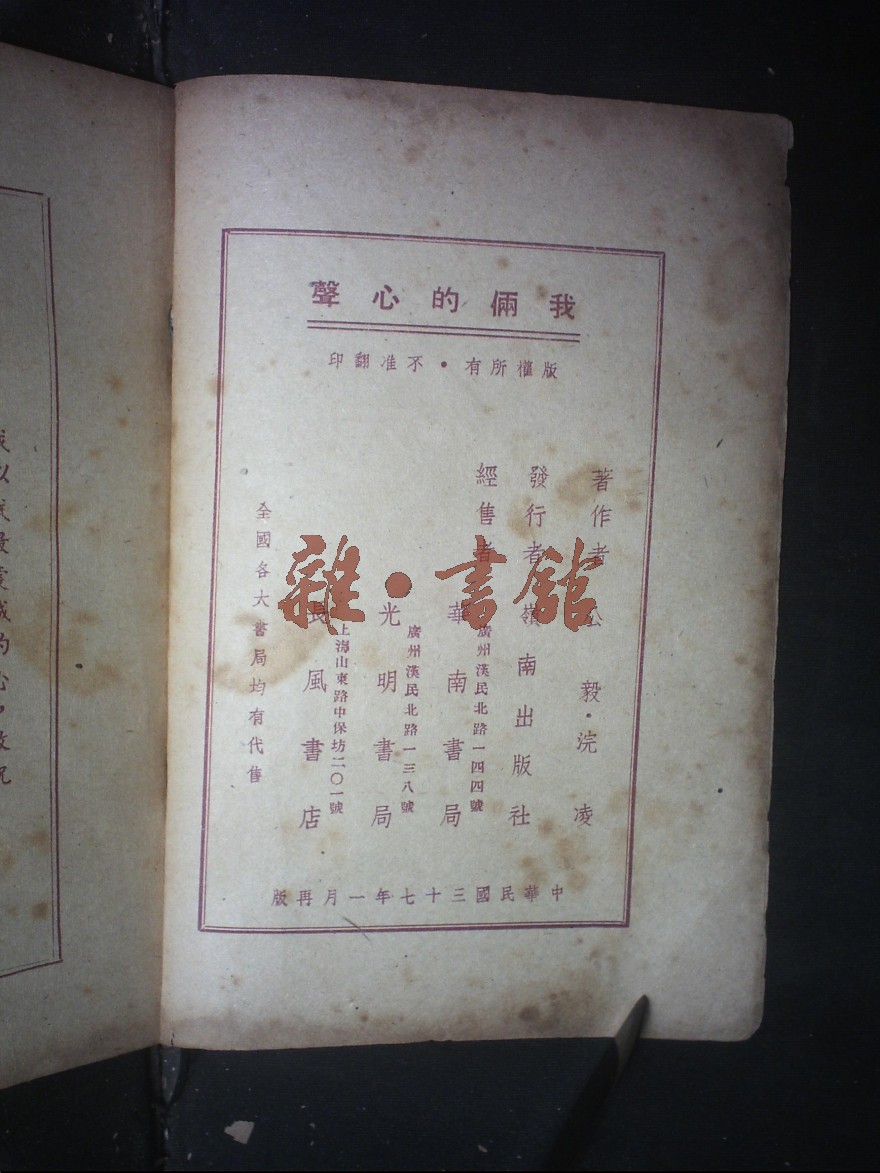 我倆的心聲
版權所有・不准翻印
著作者 公毅・浣凌
發行者 嶺南出版社
經售者 華南書局
廣州漢民北路一四四號
光明書局
廣州漢民北路一三八號
長風書店
上海山東路中保坊二〇一號
全國各大書局均有代售
中華民國三十七年一月再版
雜・書館